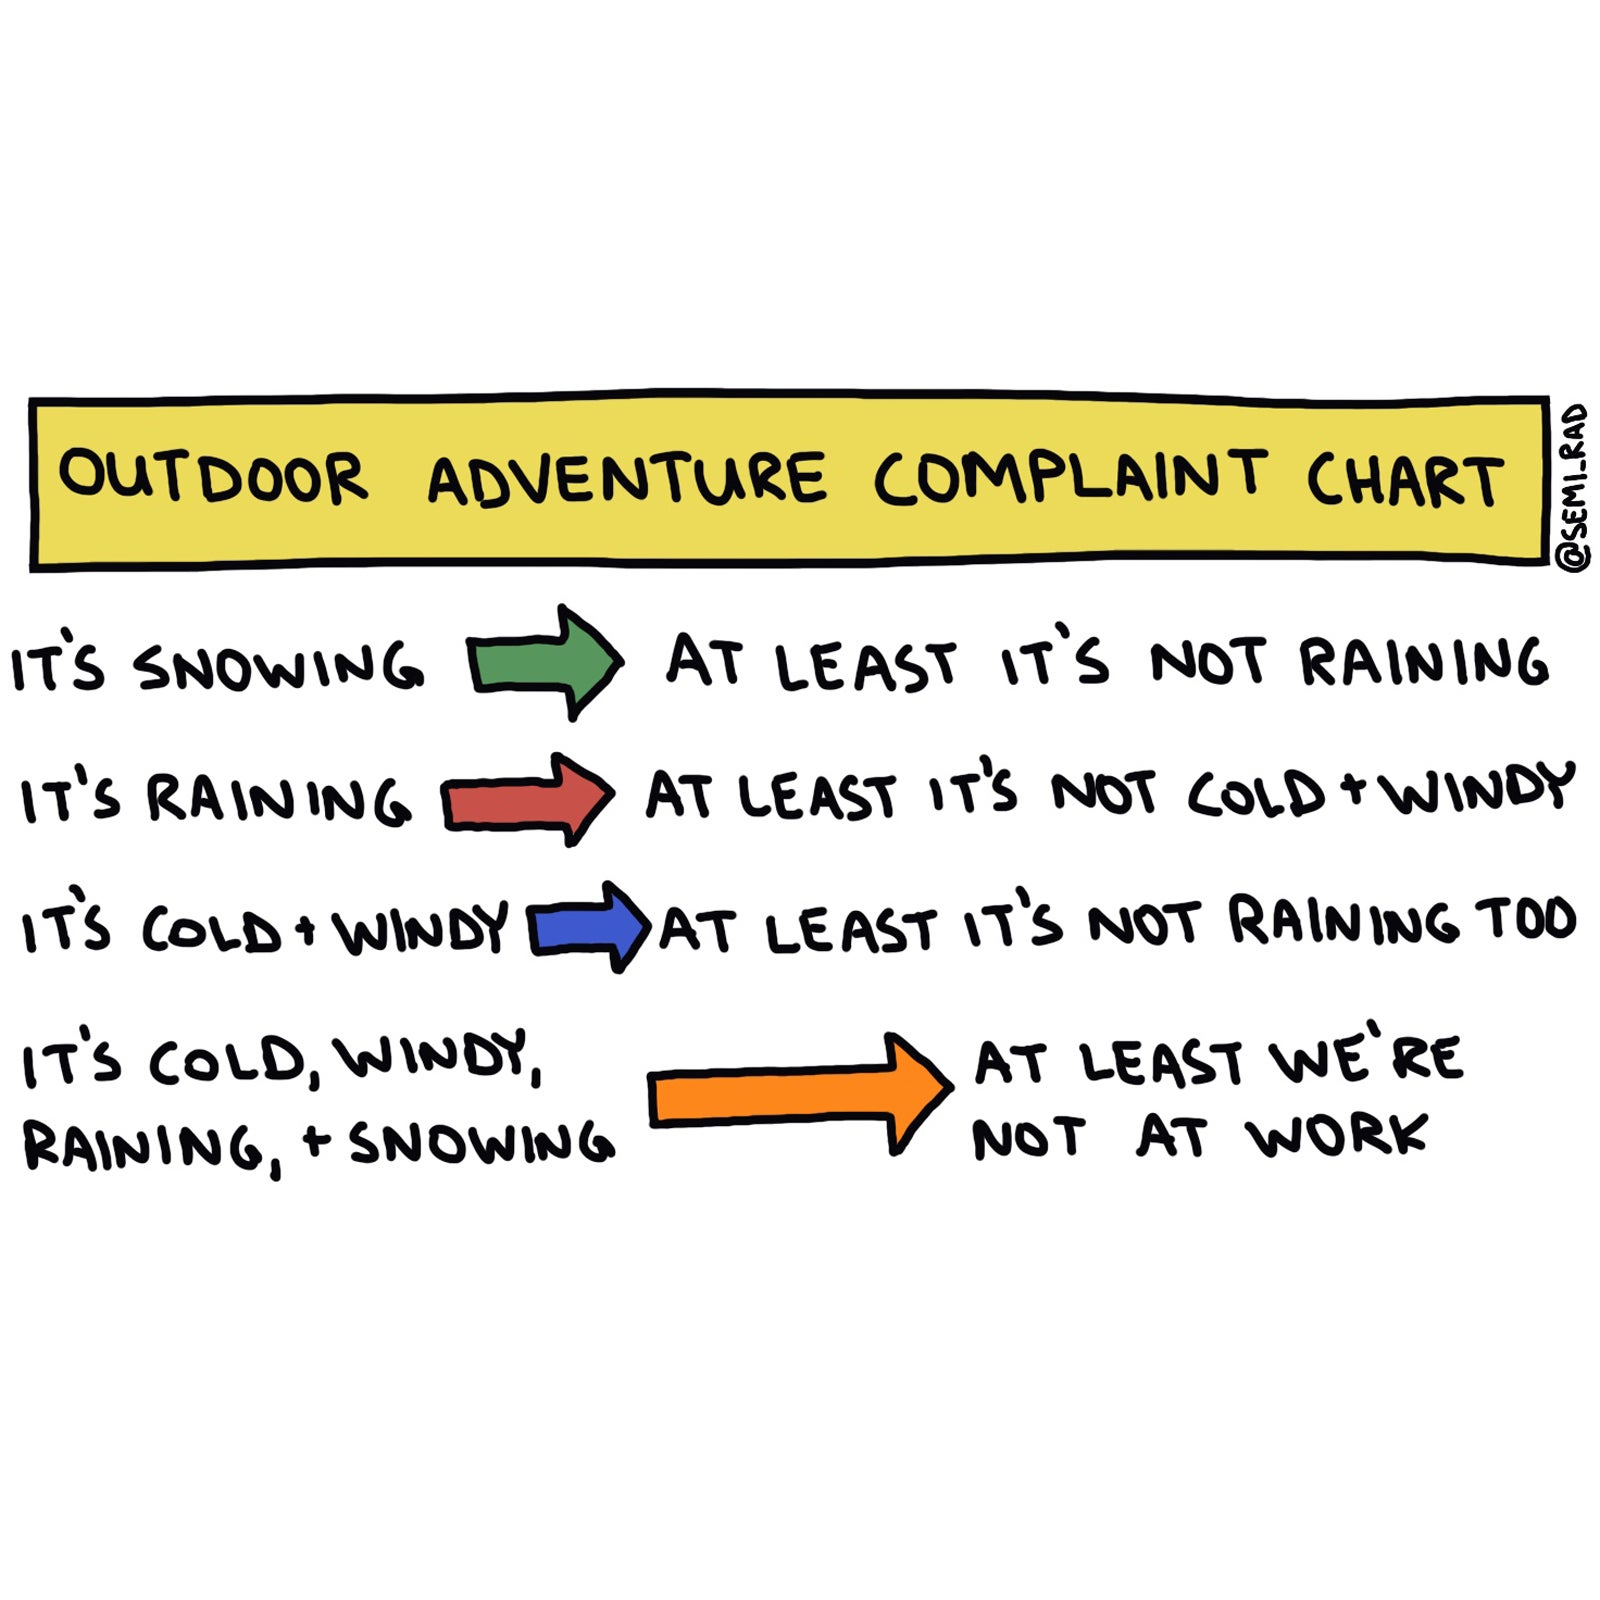 OUTDOOR ADVENTURE COMPLAINT CHART
@SEMI_RAD
IT'S SNOWING AT LEAST IT'S NOT RAINING
IT'S RAINING AT LEAST IT'S NOT COLD + WINDY
IT'S COLD + WINDY AT LEAST IT'S NOT RAINING TOO
IT'S COLD, WINDY,
RAINING, + SNOWING
AT LEAST WE'RE
NOT AT WORK